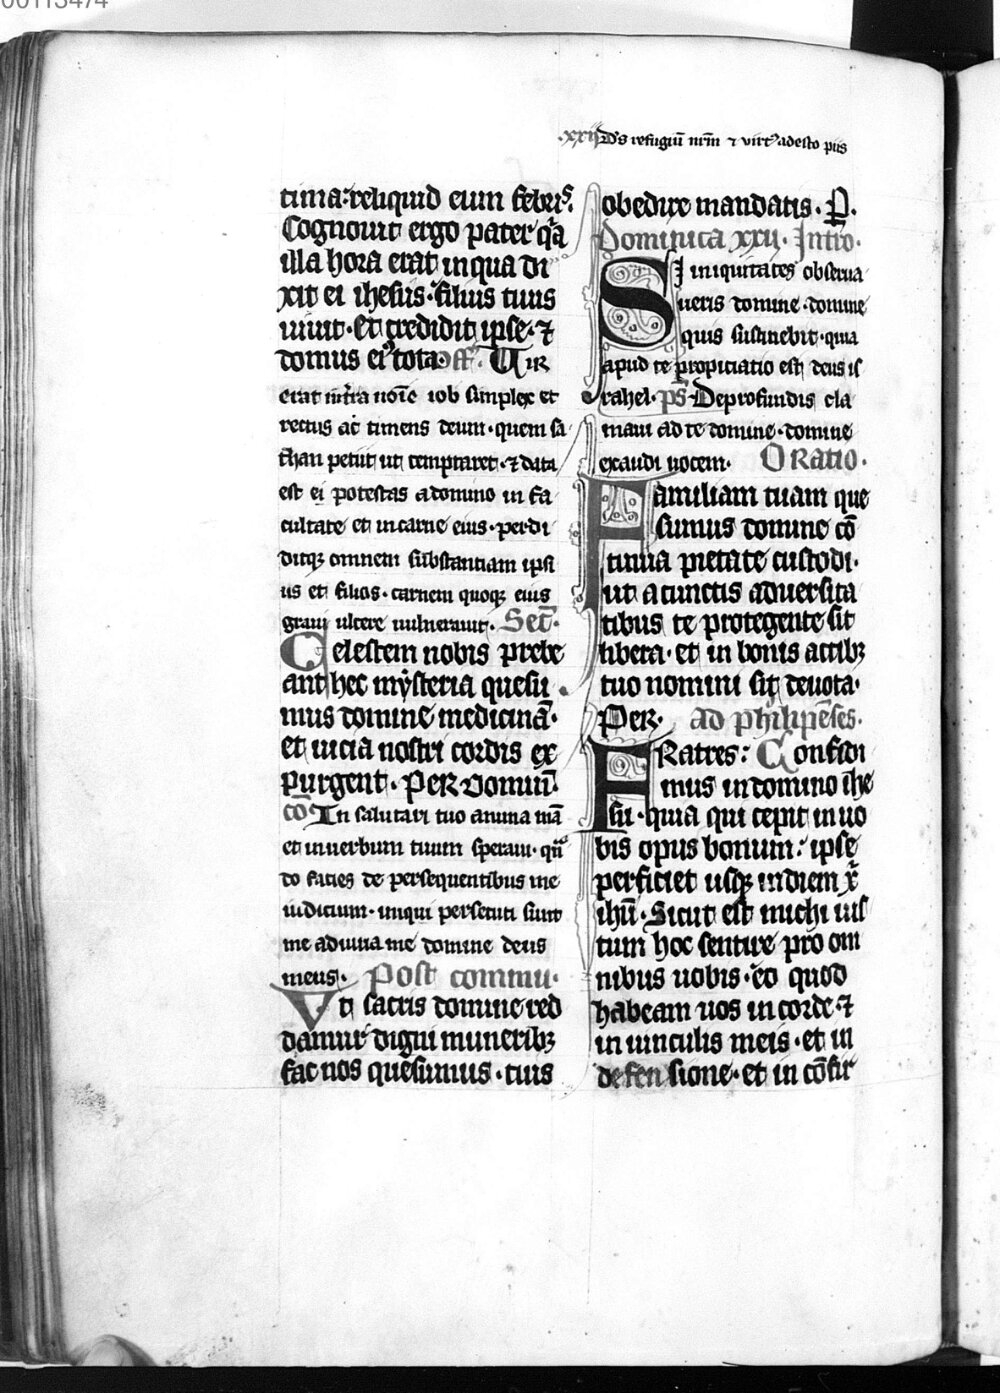 00113474
.xxij D̄s refugiū nr̄m ⁊ virt᷒ adesto piis
tima: reliquid eum febris.
Cognouit ergo pater q̄a
illa hora erat in qua di
xit ei ihesus. filius tuus
uiuit. Et credidit ipse. ⁊
domus ei᷒ tota. Off̄. Uir
erat in terra noīe iob simplex et
rectus ac timens deum. quem sa
than petiit ut temptaret. ⁊ data
est ei potestas a domino in fa
cultate et in carne eius. perdi
ditqꝫ omnem substantiam ipsi
us et filios. carnem quoqꝫ eius
graui ulcere uulnerauit. Sec̄.
Celestem nobis prebe
ant hec mẏsteria quesu
mus domine medicinā.
et uicia nostri cordis ex
purgent. Per domin̄.
cō In salutari tuo anima mā
et in uerbum tuum speraui. qn̄
do facies de persequentibus me
iudicium. iniqui persecuti sunt
me adiuua me domine deus
meus. Post commu.
Vt sacris domine red
damur digni muneribꝫ
fac nos quesumus. tuis
obedire mandatis. P̲.
Dominica xxii. Intro.
Si iniquitates obserua
ueris domine. domine
quis sustinebit. quia
apud te propiciatio est deus is
rahel. p̄s. De profundis cla
maui ad te domine. domine
exaudi uocem. Oratio.
Familiam tuam que
sumus domine cō
tinua pietate custodi.
ut a cunctis aduersita
tibus te protegente sit
libera. et in bonis actibꝫ
tuo nomini sit deuota.
Per. ad philipēses.
Fratres: Confidi
mus in domino ihe
su. quia qui cepit in uo
bis opus bonum: ipse
perficiet usqꝫ in diem xp̄i
ihū. Sicut est michi ius
tum hoc sentire pro om
nibus uobis. eo quod
habeam uos in corde. ⁊
in uinculis meis. et in
defensione. et in cōfir